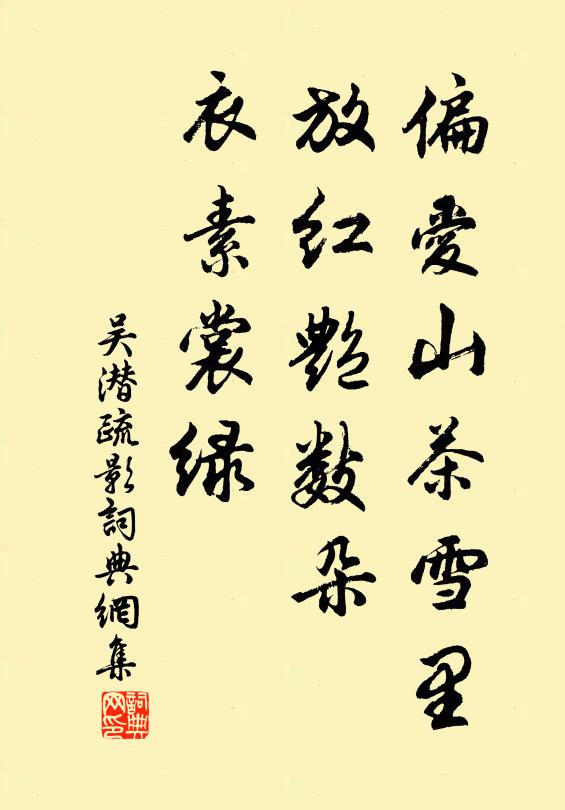 偏愛山茶雪里
放红艷數朵
衣素裳緑
吴潜疏影詞典網集
詞典网印